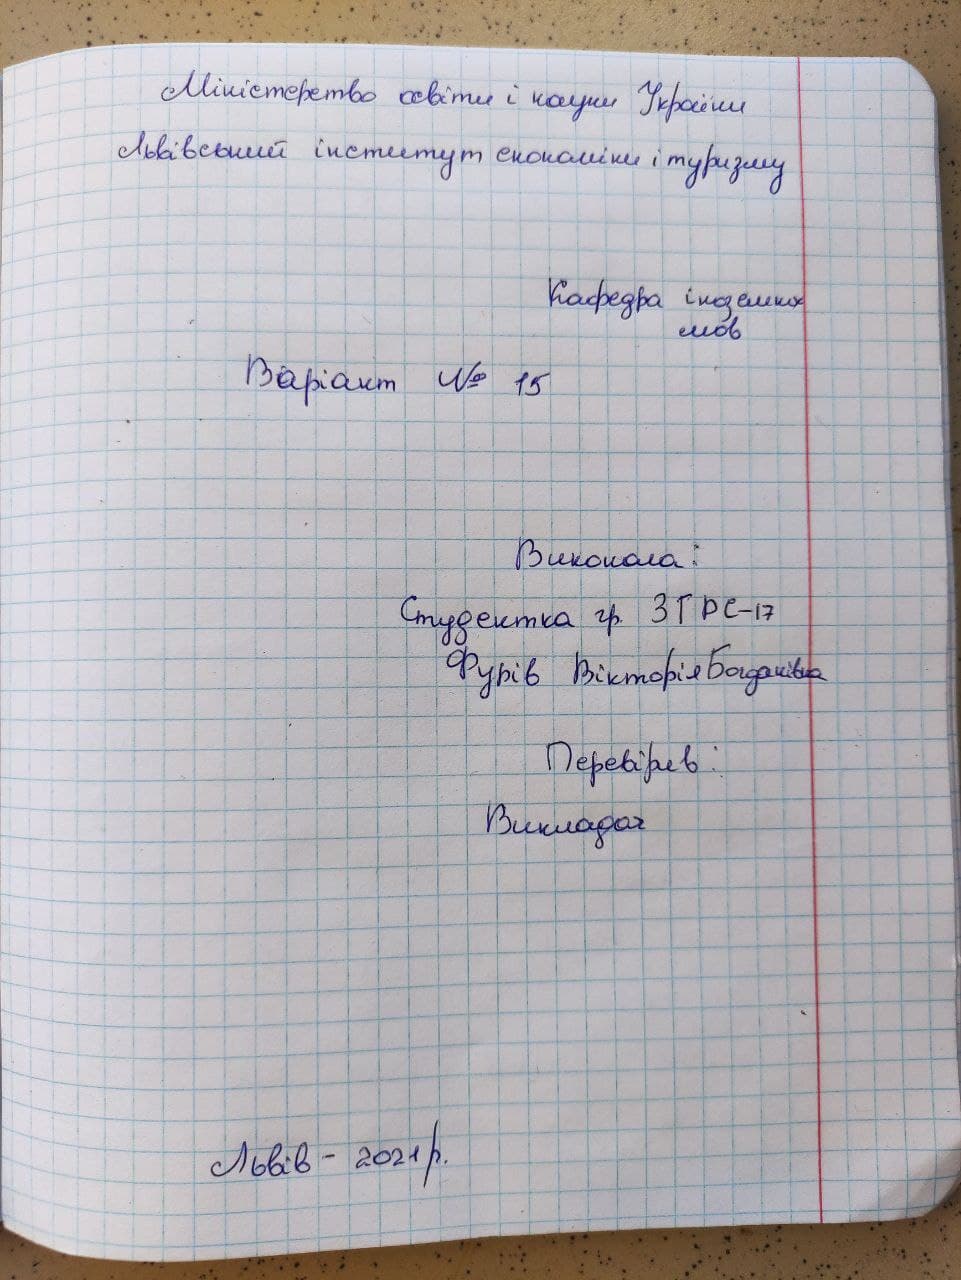 Міністерство освіти і науки України
Львівський інститут економіки і туризму
Кафедра іноземних
мов
Варіант № 15
Виконала:
Студентка гр. ЗГРС-17
Фурів Вікторія Богданівна
Перевірив:
Викладач
Львів - 2021 р.